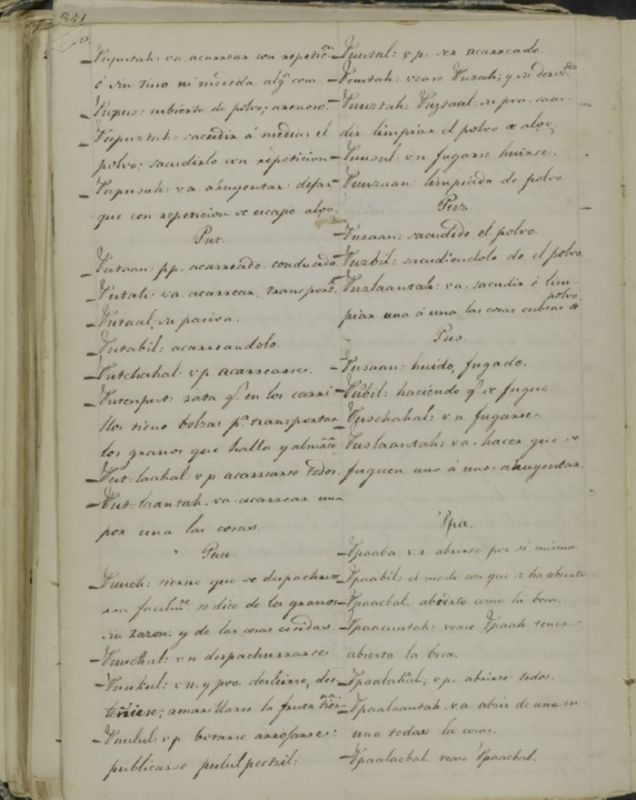 351
Puputah: va. acarrear con repeticn
ó sin tino ni medida algª cosa.
Pupuz: cubierto de polvo; arenoso.
Pupuztah: sacudir á medias el
polvo; sacudirlo con repeticion
Pupusah: va ahuyentar: dejar
que con repeticion se escape algo.
Put.
Putaan: pp. acarreado. conducido
Putah: va. acarrear, transport.r
Putaal: su pasiva.
Putabil: acarreandolo.
Putchahal: v.p. acarrearse.
rata q.e en los carri-
llos tiene bolzas pª transportar
los granos que halla y
Putlaahal v.p acarrearse todos.
Putlaantah. va. acarrear una
por una las cosas.
Puu.
Puuch: tierno que se despachur-
rra se dice de los granos
sin razon: y de las cosas cosidas.
Puuchul: v.n despachurrarse
Puukul: v.n. y pro. desleirse, des-
teñirse; amarillarse la fruta
Puulul: v.p botarse arrojarse:
publicarse puluLpectzil:
Puutal: v.p. ser acarreado.
Puutah: vease Putah; y su deriv.dos
Puuztah: Puztaal: su pva. saa-
dir limpiar el polvo de algo;
Puusul: v.n fugarse huirse.
Puuzaan: limpiado de polvo
Puz.
Puzaan: sacudido el polvo.
Puzbil: sacudiendolo de el polvo
Puzlaantah: va. sacudir ó lim-
piar una á una las cosas cubras de polvo.
Pus.
Pusaan: huido, fugado.
Pusbil: haciendo q.e se fugue
Puschahal: v.n. fugarse.
Puslaantah: va. hacer que se
fuguen uno á uno: ahuyentar.
Ppa.
Ppaaba v.r. abrirse por si mismo
Ppaabil: el modo con que se ha abierto
Ppaacbal. abierto como la boca.
Ppaacuntah: vease Ppaah tener
abierta la boca.
Ppaalahal; v.p. abrirse todos.
Ppaalaantah. va. abrir de una en
una todas la cosas.
Ppaalacbal vease Ppaacbal.